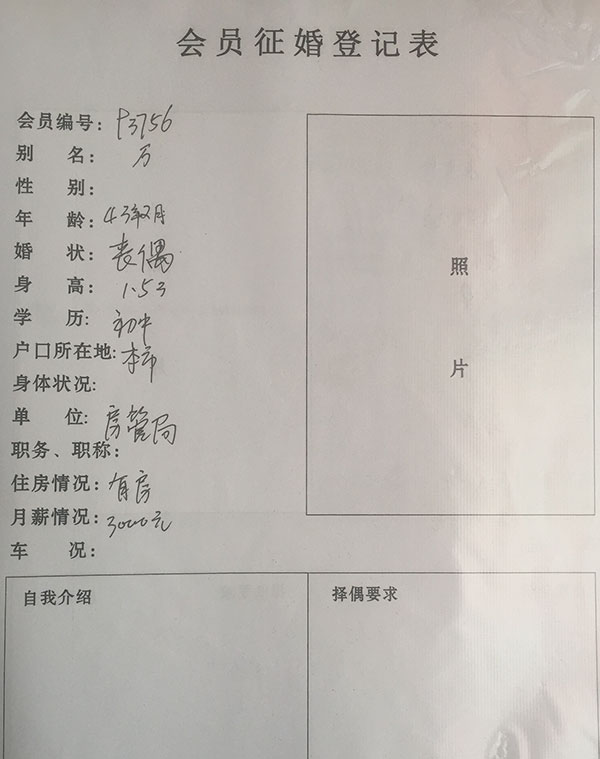 会员征婚登记表
会员编号: P3756
别 名: 万
性 别:
年 龄: 43年2月
婚 状: 丧偶
身 高: 1.53
学 历: 初中
户口所在地: 本市
身体状况:
单 位: 房管局
职务、职称:
住房情况: 有房
月薪情况: 3000元
车 况:
照
片
自我介绍
择偶要求